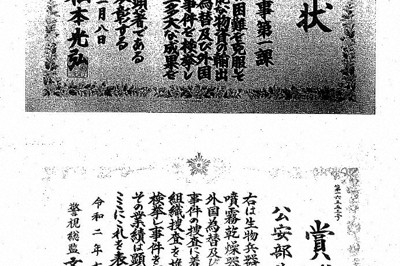 状
事第一課
困難を克服し
物資の輸出
為替及び外国
事件を検挙し
多大な成果を
顕著である
彰する
月八日
本光弘
賞
公安部
右は生物兵器
噴霧乾燥器
外国為替及び
事件の捜査に着
組織捜査を推
検挙し事件を
その業績は顕
ここにこれを表
令和二年
警視総監